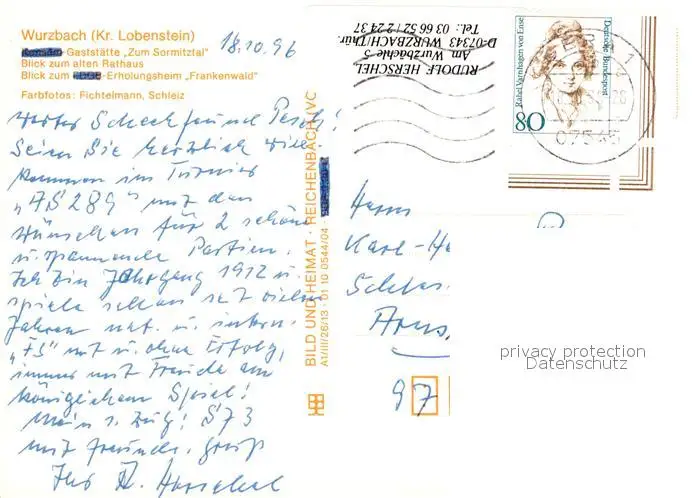 Wurzbach (Kr. Lobenstein)
Konsum-Gaststätte „Zum Sormitztal"
Blick zum alten Rathaus
Blick zum -Erholungsheim „Frankenwald"
Farbfotos: Fichtelmann, Schleiz
18.10.96
Werter Schachfreund Pesch!
Seien Sie herzlich will-
kommen im Turnier
„FS 289" mit den
Wünschen für 2 schöne
u. spannende Partien.
Ich bin Jahrgang 1912 u.
spiele schon seit vielen
Jahren nat. u. intern.
„FS" mit u. ohne Erfolg,
immer mit Freude am
königlichen Spiel!
Mein 1. Zug: Sf3
mit freundl. Gruß
Ihr R. Herschel
BILD UND HEIMAT · REICHENBACH (VC
A1/III/26/13 · 01 10 0544/04
RUDOLF HERSCHEL
Am Wurzbächle 5
D-07343 WURZBACH/Thür.
Tel.: 03 66 52 / 2 24 37
Rahel Varnhagen von Ense
Deutsche Bundespost
80
0754
Herrn
Karl-He
97
privacy protection
Datenschutz